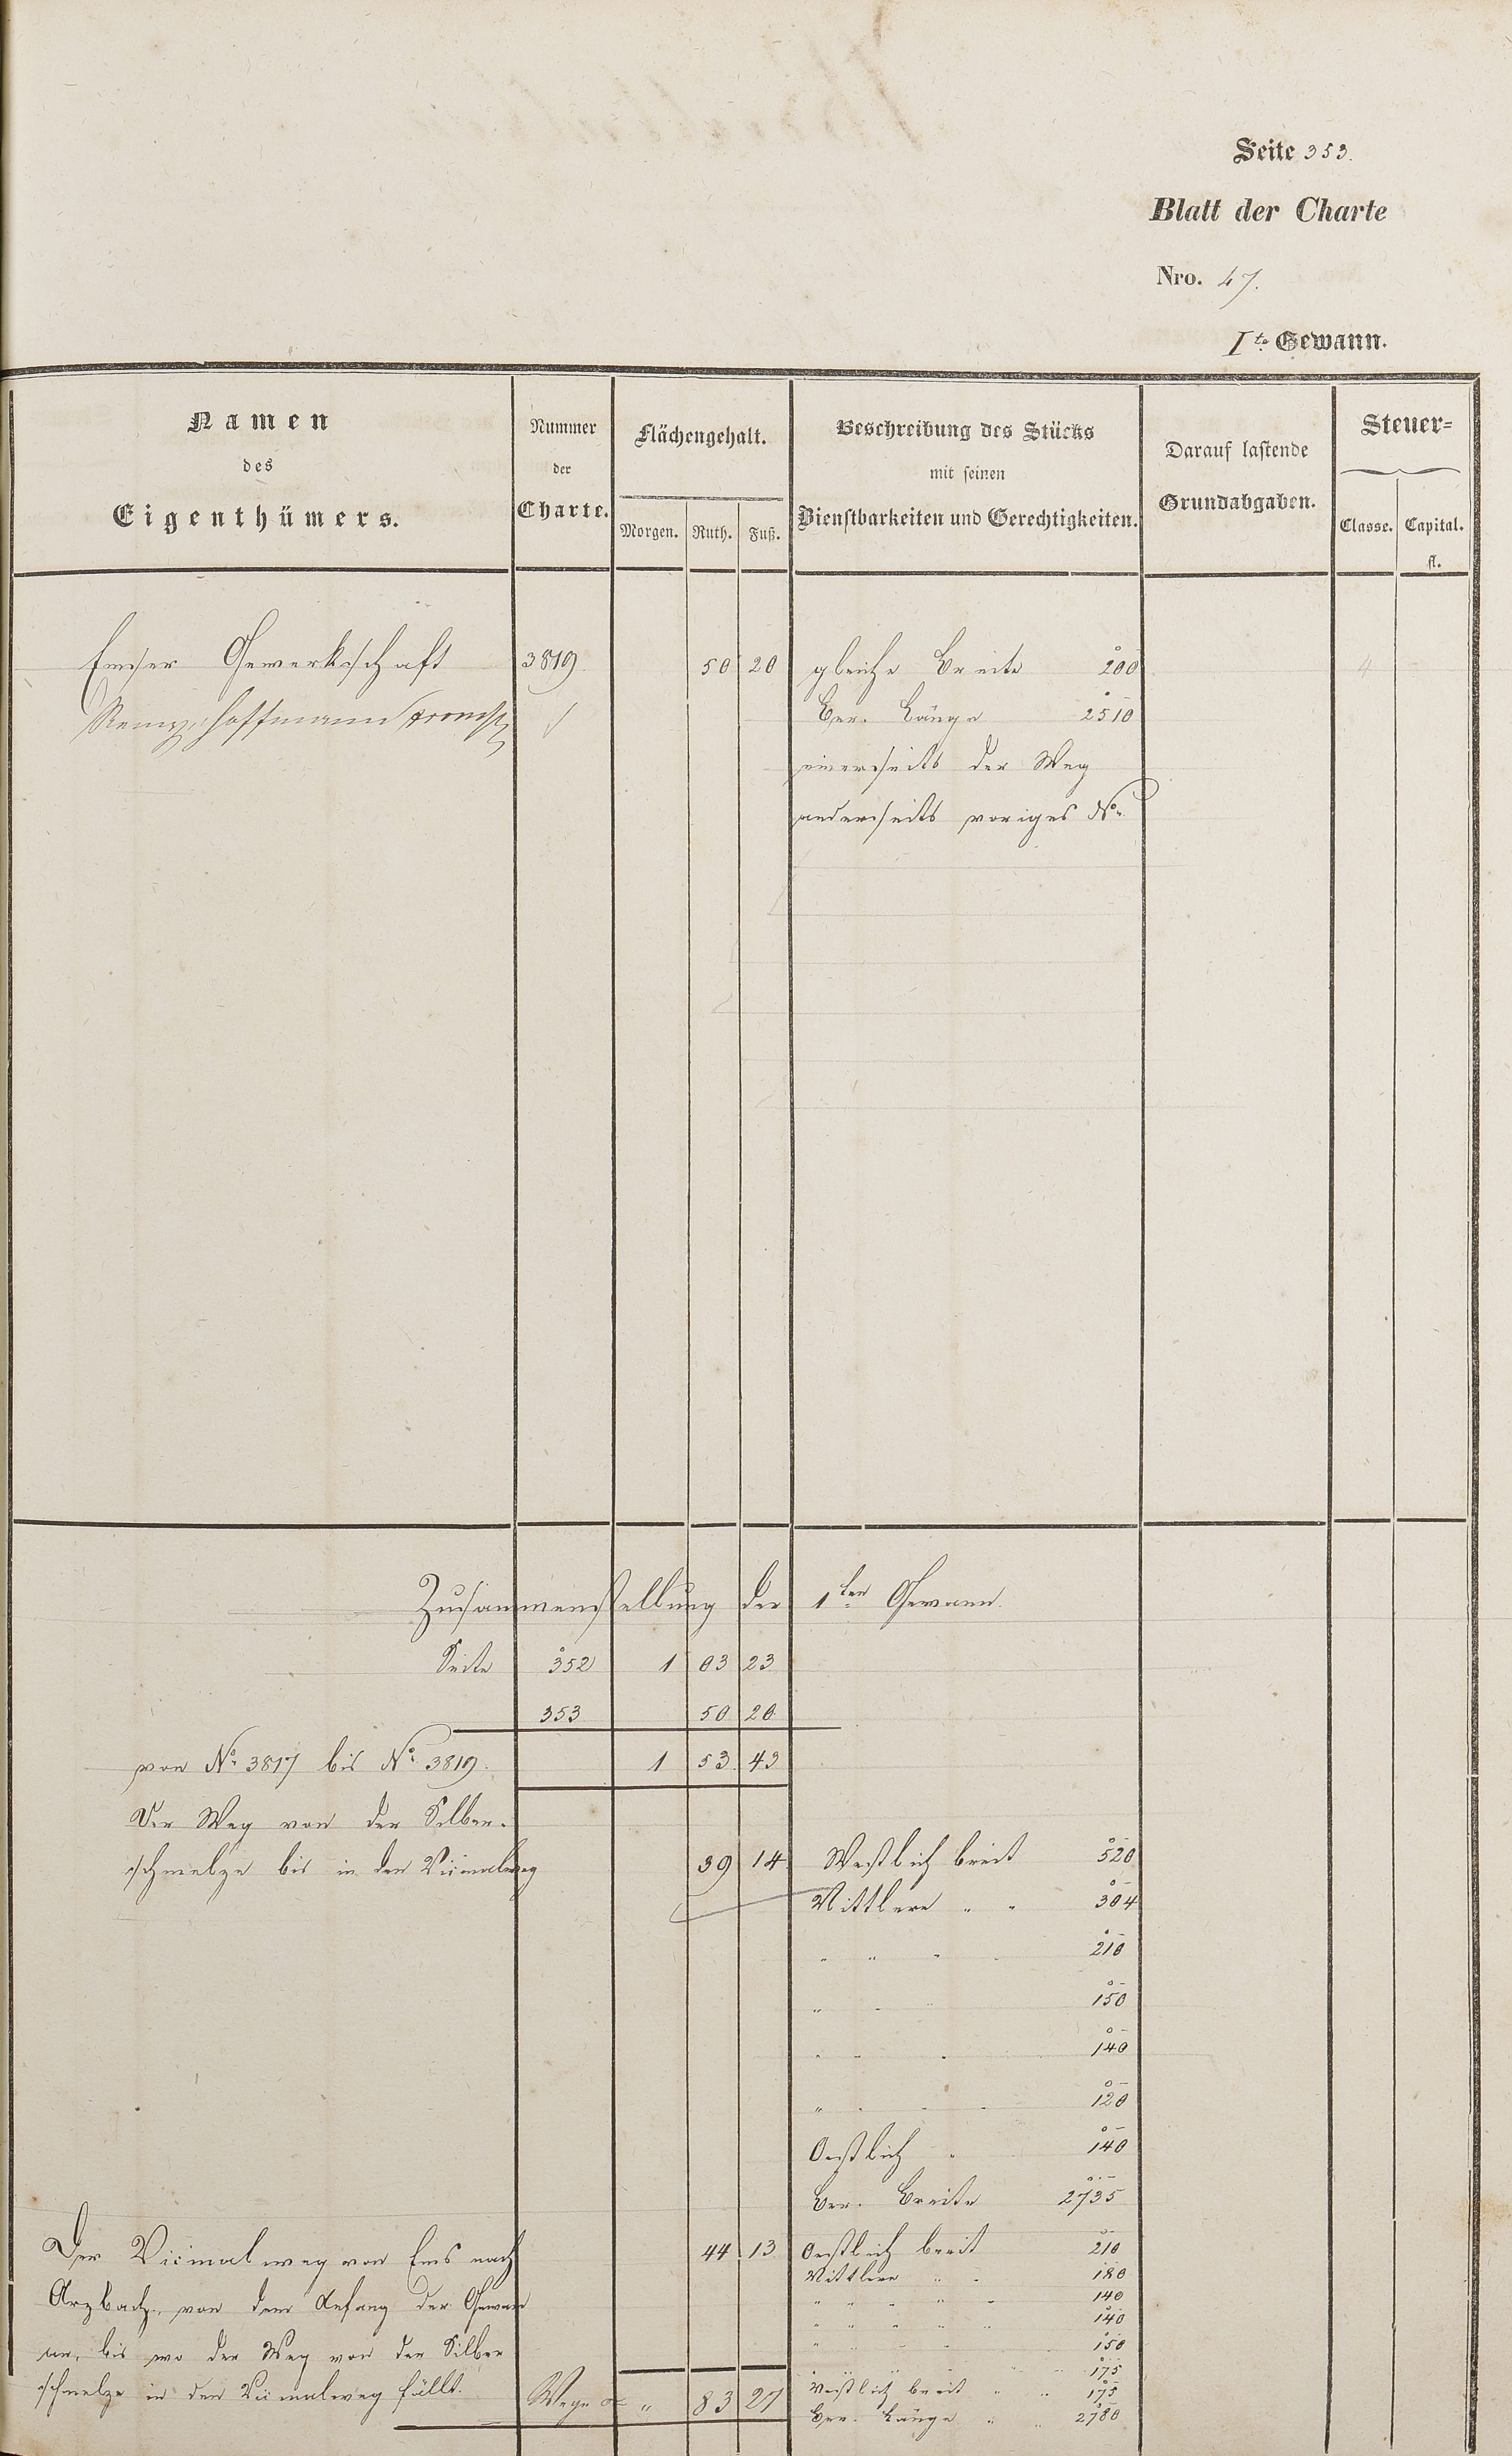 Seite 353.
Blatt der Charte
Nro. 47.
I.te Gewann.
Namen
des
Eigenthümers.
Nummer
der
Charte.
Flächengehalt.
Morgen. Ruth. Fuß.
Beschreibung des Stücks
mit seinen
Dienstbarkeiten und Gerechtigkeiten.
Darauf lastende
Grundabgaben.
Steuer=
Classe. Capital.
fl.
Emser Gewerkschaft 3819 50 20 gleiche Breite 200 4
Remy, Hoffmann Ber. Länge 2510
einerseits der Weg
anderseits voriges No.
Zusammenstellung der 1ten Gewann.
Seite 352 1 03 23
353 50 20
von No. 3817 bis No. 3819. 1 53 43
Der Weg von der Silber-
schmelze bis in den Vicinalweg 39 14 Westlich breit 520
Mittlere " " 304
" " " " 210
" " " 150
" " " 140
" " " " 120
Oestlich " 140
Ber. Breite 2735
Der Vicinalweg von Ems nach 44 13 Oestlich breit 210
Mittlere " " 180
Arzbach, von dem Anfang der Gewann " " " " " 140
" " " " " 140
an, bis wo der Weg von der Silber " " " " 150
175
schmelze in den Vicinalweg fällt. Wege " 83 27 Westlich breit " " 175
Ber. Länge " " 2780